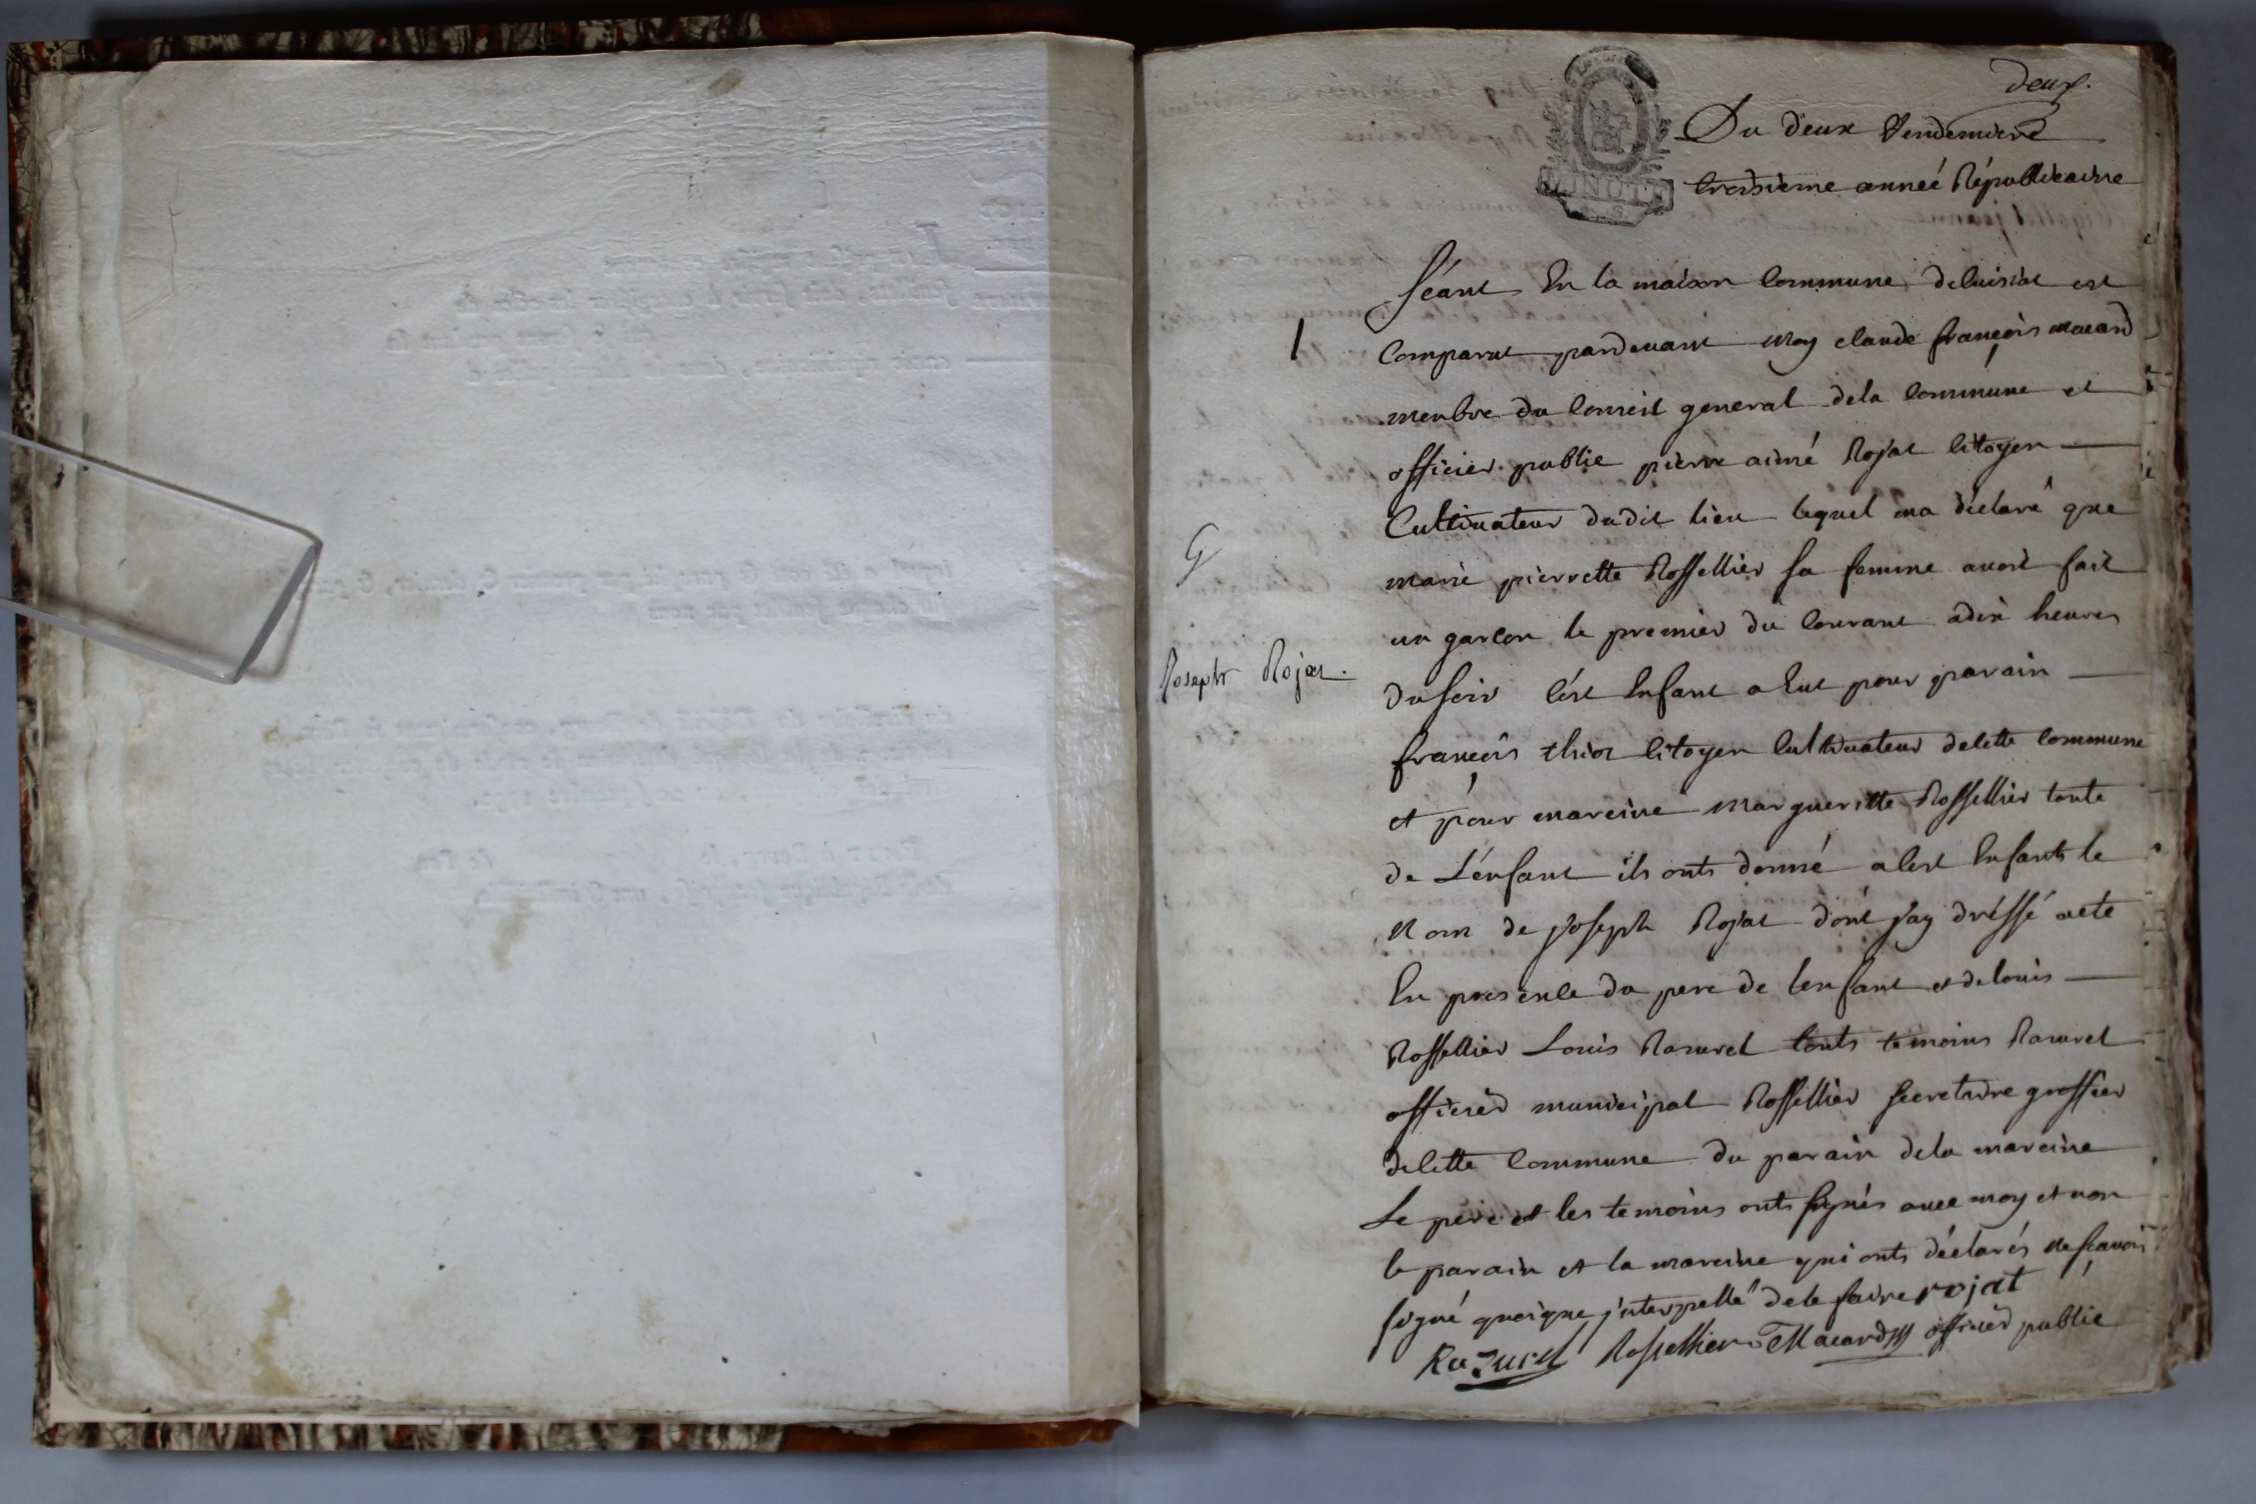 deux.
Du deux Vendemiere
troisieme anneé Républicaine
Séant En la maison Commune de luisiat est
1
Comparut pardevant moy claude françois macard
menbre du Conseil general de la Commune et
officier public pierre aimé Rojat Citoyen
Cultivateur dudit lieu lequel ma déclaré que
G
marie pierrette Rossellier sa femme avoit fait
un garcon le premier du Courant a dix heures
Joseph Rojat.
du soir Cést Enfant a Eut pour parain
françois thiot Citoyen Cultivateur de Cette Commune
et pour mareine Margueritte Rossellier tante
de L'énfant ils onts donné a Cest Enfants le
Nom de Joseph Rojat dont J'ay dréssé acte
En presence du pere de lenfant et de louis
Rossellier Louis Razurel touts temoins Razurel
officier municipal Rossellier secretaire greffier
de Cette Commune du parain de la mareine
Le pere et les temoins onts signés avec moy et non
le parain et la mareine qui onts déclarés ne scavoir
signé quoique j'nterpellé de le faire rojat
Razurel Rossellier Macard officier public